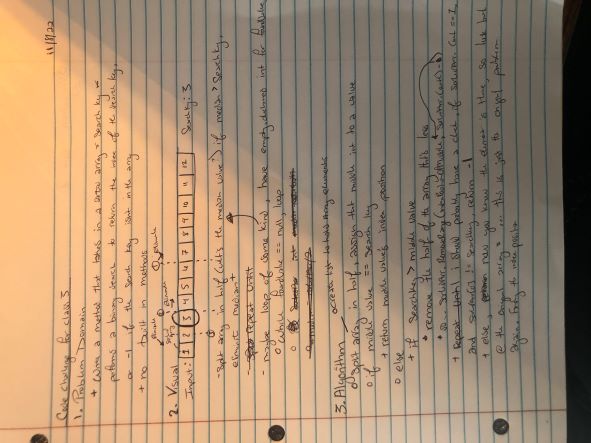 11/8/22
Code challenge for class 3
1. Problem Domain
+ Write a method that takes in a array + search key
performs a binary search to return the index of the search key,
or -1 if the search key isnt in the array
+ no built in methods
2. Visual
Input: 1 2 3 4 5 6 7 8 9 10 11 12 Searchkey: 3
- Split array in half (what's the median value?) if median > Searchkey,
eliminate median+
- repeat until
- maybe loop of some kind, have empty int for foundvalue
o while foundvalue == null, loop
int
3. Algorithm o create list to hold Array elements
o Split array in half, assign that middle int to a value
o if middle value == search key
+ return middle value's index position
o else
+ if Searchkey > middle value
* remove the half of the array thats less
+ Repeat Until i should probably have a check, if solution.
and != searchkey, return -1
+ else, now you know the element is there, so look back
@ the original array + ... this is just the original problem
again. finding the index position